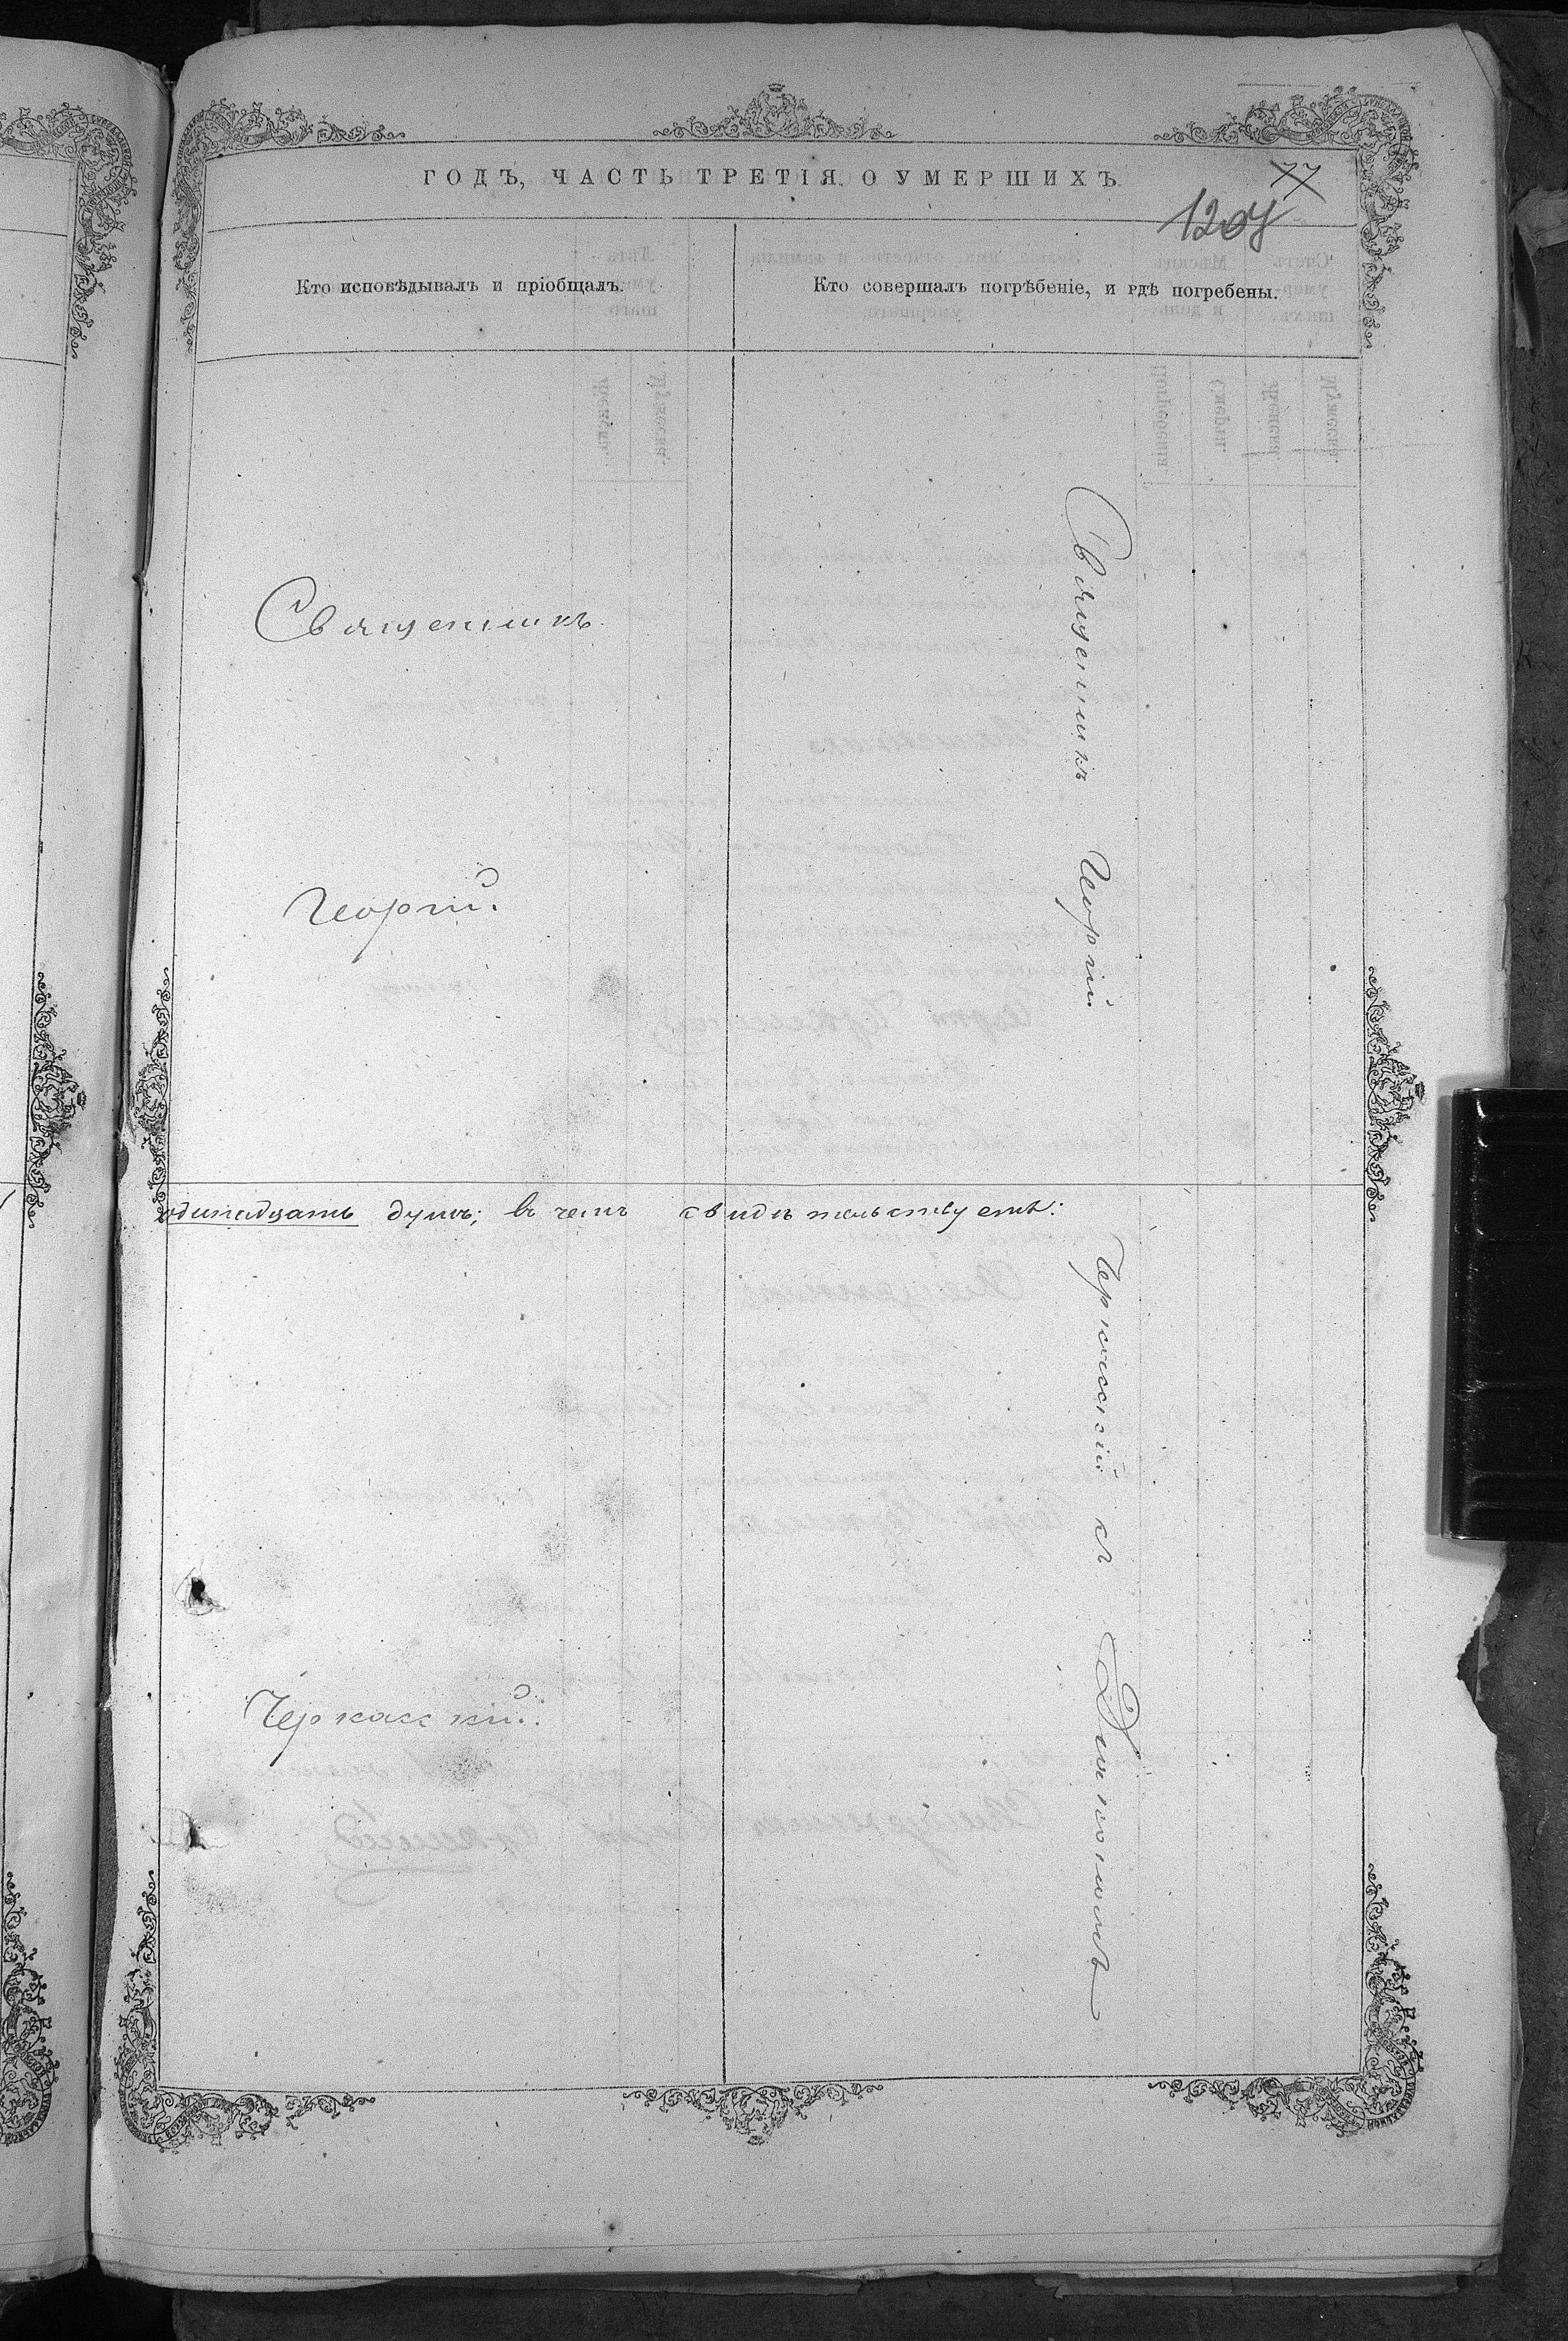 ГОДЪ, ЧАСТЬ ТРЕТІЯ О УМЕРШИХЪ.
77
1207
Кто исповѣдывалъ и пріобщалъ.
Кто совершалъ погрѣбеніе, и гдѣ погребены.
Священникъ
Георгій
одинадцать душъ; въ чемъ свидѣтельствуемъ:
Черкасскій.
Священникъ Георгій
Черкасскій съ Діакономъ